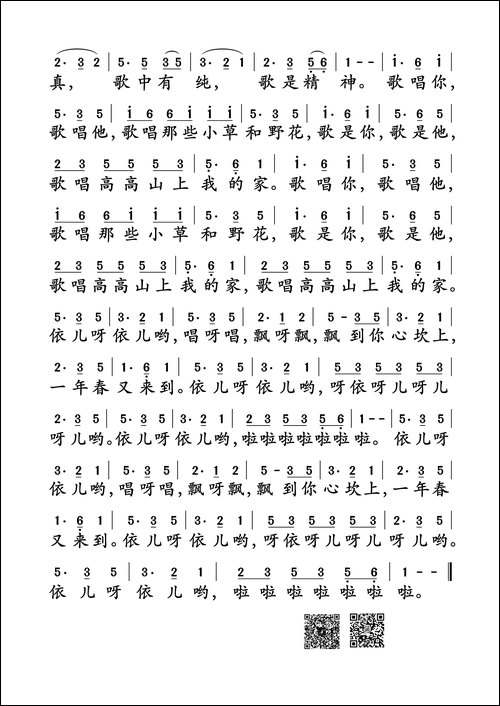 2· 3 2 | 5· 5 3 5 | 3· 2 1 | 2· 3 5 6 | 1 - - | i· 6 i |
真， 歌中有 纯， 歌是精 神。歌唱你，
5· 3 5 | i 6 6 i i i | 5· 3 5 | i· 6 i | 5· 6 5 |
歌唱他，歌唱那些小草和野花，歌是你，歌是他，
2 3 5 5 5 3 | 5· 6 1 | i· 6 i | 5· 3 5 |
歌唱高高山上我的家。歌唱你，歌唱他，
i 6 6 i i i | 5· 3 5 | i· 6 i | 5· 6 5 |
歌唱那些小草和野花，歌是你，歌是他，
2 3 5 5 5 3 | 5· 6 1 | 2 3 5 5 5 3 | 5· 6 1 |
歌唱高高山上我的家，歌唱高高山上我的家。
5· 3 5 | 3· 2 1 | 5· 3 5 | 2· 1 2 | 5 - 3 5 | 3· 2 1 |
依儿呀依儿哟，唱呀唱，飘呀飘，飘 到你心坎上，
2· 3 5 | 1· 6 1 | 5· 3 5 | 3· 2 1 | 5 3 5 3 5 3 |
一年春又来到。依儿呀依儿哟，呀依呀儿呀儿
2· 3 5 | 5· 3 5 | 3· 2 1 | 2 3 5 3 5 6 | 1 - - | 5· 3 5 |
呀儿哟。依儿呀依儿哟，啦啦啦啦啦啦啦。 依儿呀
3· 2 1 | 5· 3 5 | 2· 1 2 | 5 - 3 5 | 3· 2 1 | 2· 3 5 |
依儿哟，唱呀唱，飘呀飘，飘 到你心坎上，一年春
1· 6 1 | 5· 3 5 | 3· 2 1 | 5 3 5 3 5 3 | 2· 3 5 |
又来到。依儿呀依儿哟，呀依呀儿呀儿呀儿哟。
5· 3 5 | 3· 2 1 | 2 3 5 3 5 6 | 1 - - ‖
依儿呀依儿哟，啦啦啦啦啦啦啦。